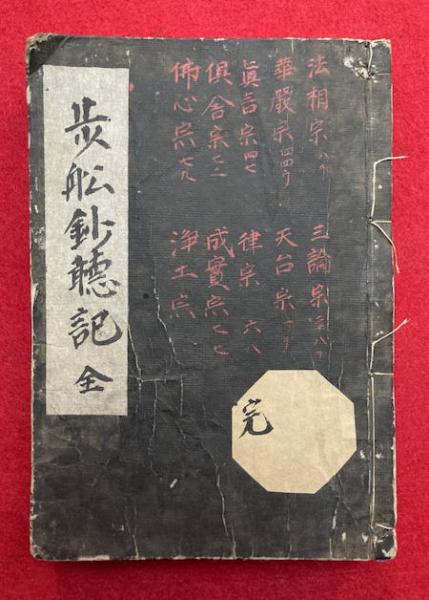 法相宗
三論宗
華嚴宗
天台宗
眞言宗 四七
律宗 六八
俱舍宗 七二
成實宗 七七
佛心宗 七九
淨土宗
步舩鈔聽記 全
完